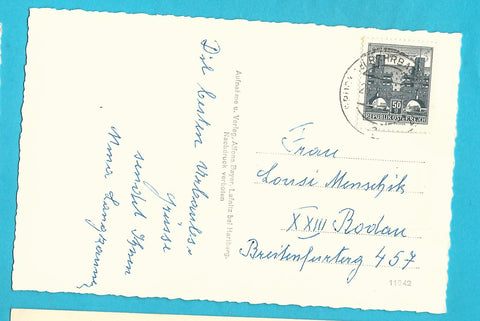 Die besten Urlaubs-
grüsse
sendet Ihnen
Mina
Aufnahme u. Verlag: Alfons Bayer, Lafnitz bei Hartberg.
Nachdruck verboten
50
REPUBLIK ÖSTERREICH
Frau
Louisi Menschik
XXIII Rodau
Breitenfurterg 457
11042